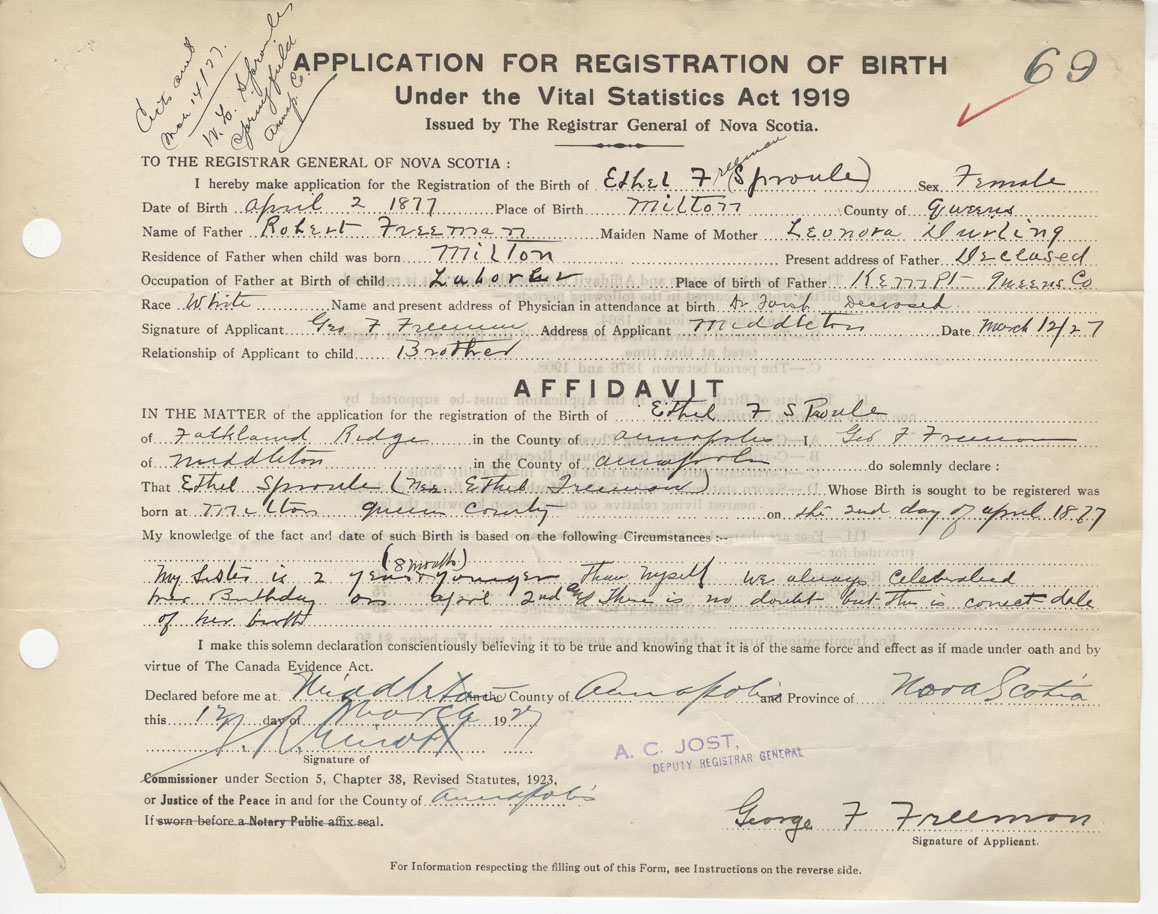 Certs sent
Mar. 14/27.
W. L. Sproule
Springfield
Annap. Co.
69
APPLICATION FOR REGISTRATION OF BIRTH
Under the Vital Statistics Act 1919
Issued by The Registrar General of Nova Scotia.
TO THE REGISTRAR GENERAL OF NOVA SCOTIA :
I hereby make application for the Registration of the Birth of Ethel Freeman (Sproule) Sex Female
Date of Birth April 2 1877 Place of Birth Milton County of Queens
Name of Father Robert Freeman Maiden Name of Mother Leonora Durling
Residence of Father when child was born Milton Present address of Father Decased
Occupation of Father at Birth of child Laborber Place of birth of Father Kempt Queens Co
Race White Name and present address of Physician in attendance at birth Dr deceased
Signature of Applicant Geo F Freeman Address of Applicant Middleton Date March 12/27
Relationship of Applicant to child Brother
AFFIDAVIT
IN THE MATTER of the application for the registration of the Birth of Ethel F SProule
of Falkland Ridge in the County of Annapolis I, Geo F Freeman
of Middleton in the County of Annapolis do solemnly declare :
That Ethel Sproule (nee Ethel Freeman) Whose Birth is sought to be registered was
born at Milton Queens County on the 2nd day of April 1877
My knowledge of the fact and date of such Birth is based on the following Circumstances :--
(8 months)
My Sister is 2 years younger than myself we always celebrated
her Birthday on April 2nd and there is no doubt but this is correct date
of her birth
I make this solemn declaration conscientiously believing it to be true and knowing that it is of the same force and effect as if made under oath and by
virtue of The Canada Evidence Act.
Declared before me at Middleton in the County of Annapolis and Province of Nova Scotia
this 12 day of March 1927
Signature of
Commissioner under Section 5, Chapter 38, Revised Statutes, 1923,
or Justice of the Peace in and for the County of Annapolis
If sworn before a Notary Public affix seal.
A. C. JOST,
DEPUTY REGISTRAR GENERAL
George F Freeman
Signature of Applicant.
For Information respecting the filling out of this Form, see Instructions on the reverse side.